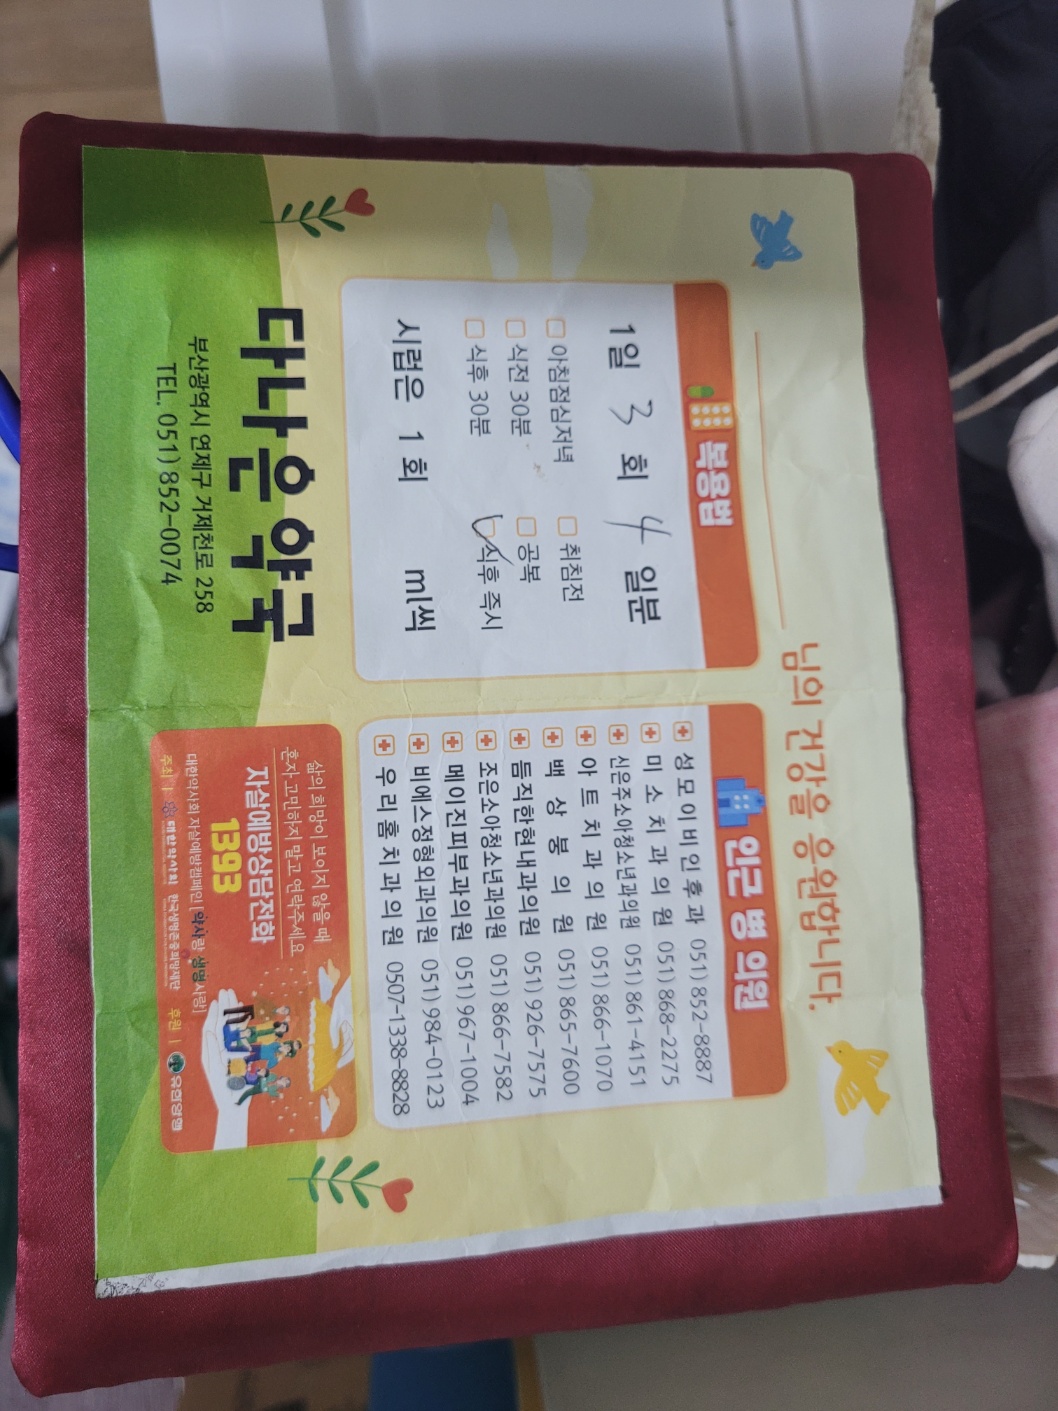 님의 건강을 응원합니다.
복용법
1일 3 회 4 일분
아침점심저녁 취침전
식전 30분 공복
식후 30분 식후 즉시
시럽은 1 회 ml씩
인근 병 의원
성모이비인후과 051) 852-8887
미소치과의원 051) 868-2275
신은주소아청소년과의원 051) 861-4151
아트치과의원 051) 866-1070
백상붕의원 051) 865-7600
듬직한현내과의원 051) 926-7575
조은소아청소년과의원 051) 866-7582
메이진피부과의원 051) 967-1004
비에스정형외과의원 051) 984-0123
우리홈치과의원 0507-1338-8828
다나은약국
부산광역시 연제구 거제천로 258
TEL. 051) 852-0074
삶의 희망이 보이지 않을 때
혼자 고민하지 말고 연락주세요
자살예방상담전화
1393
대한약사회 자살예방캠페인 [약사랑 생명사랑]
주최 | 대한약사회 한국생명존중희망재단 후원 | 유한양행